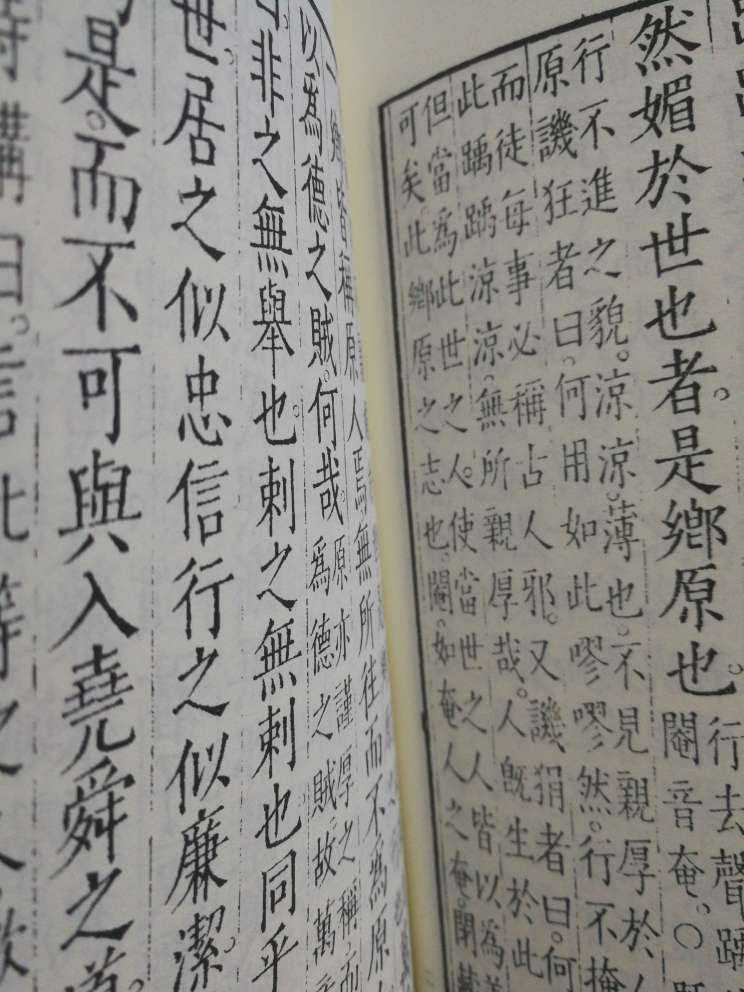 然媚於世也者。是鄉原也。行去聲踽
閹音奄。○
行不進之貌。涼涼。薄也。不見親厚於人
原譏狂者曰。何用如此嘐嘐然。行不掩
而徒每事必稱古人邪。又譏狷者曰。何
此踽踽涼涼。無所親厚哉。人既生於此
但當爲此世之人。使當世之人皆以爲
可矣。此鄉原之志也。閹。如奄人之奄。閉
一鄉皆稱原人焉。無所往而不爲原人
以爲德之賊。何哉。原亦謹厚之稱。而
爲德之賊。故萬
非之無舉也。刺之無刺也。同乎
世。居之似忠信。行之似廉潔。
是。而不可與入堯舜之道
講曰。